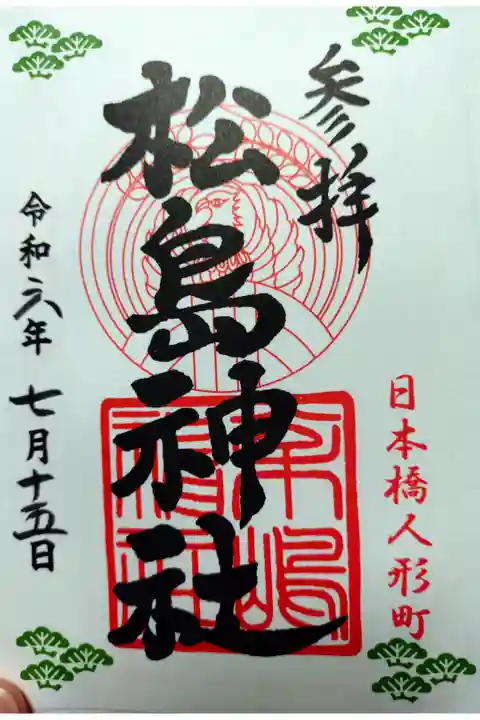 参拝
日本橋人形町
松島神社
令和六年
七月十五日